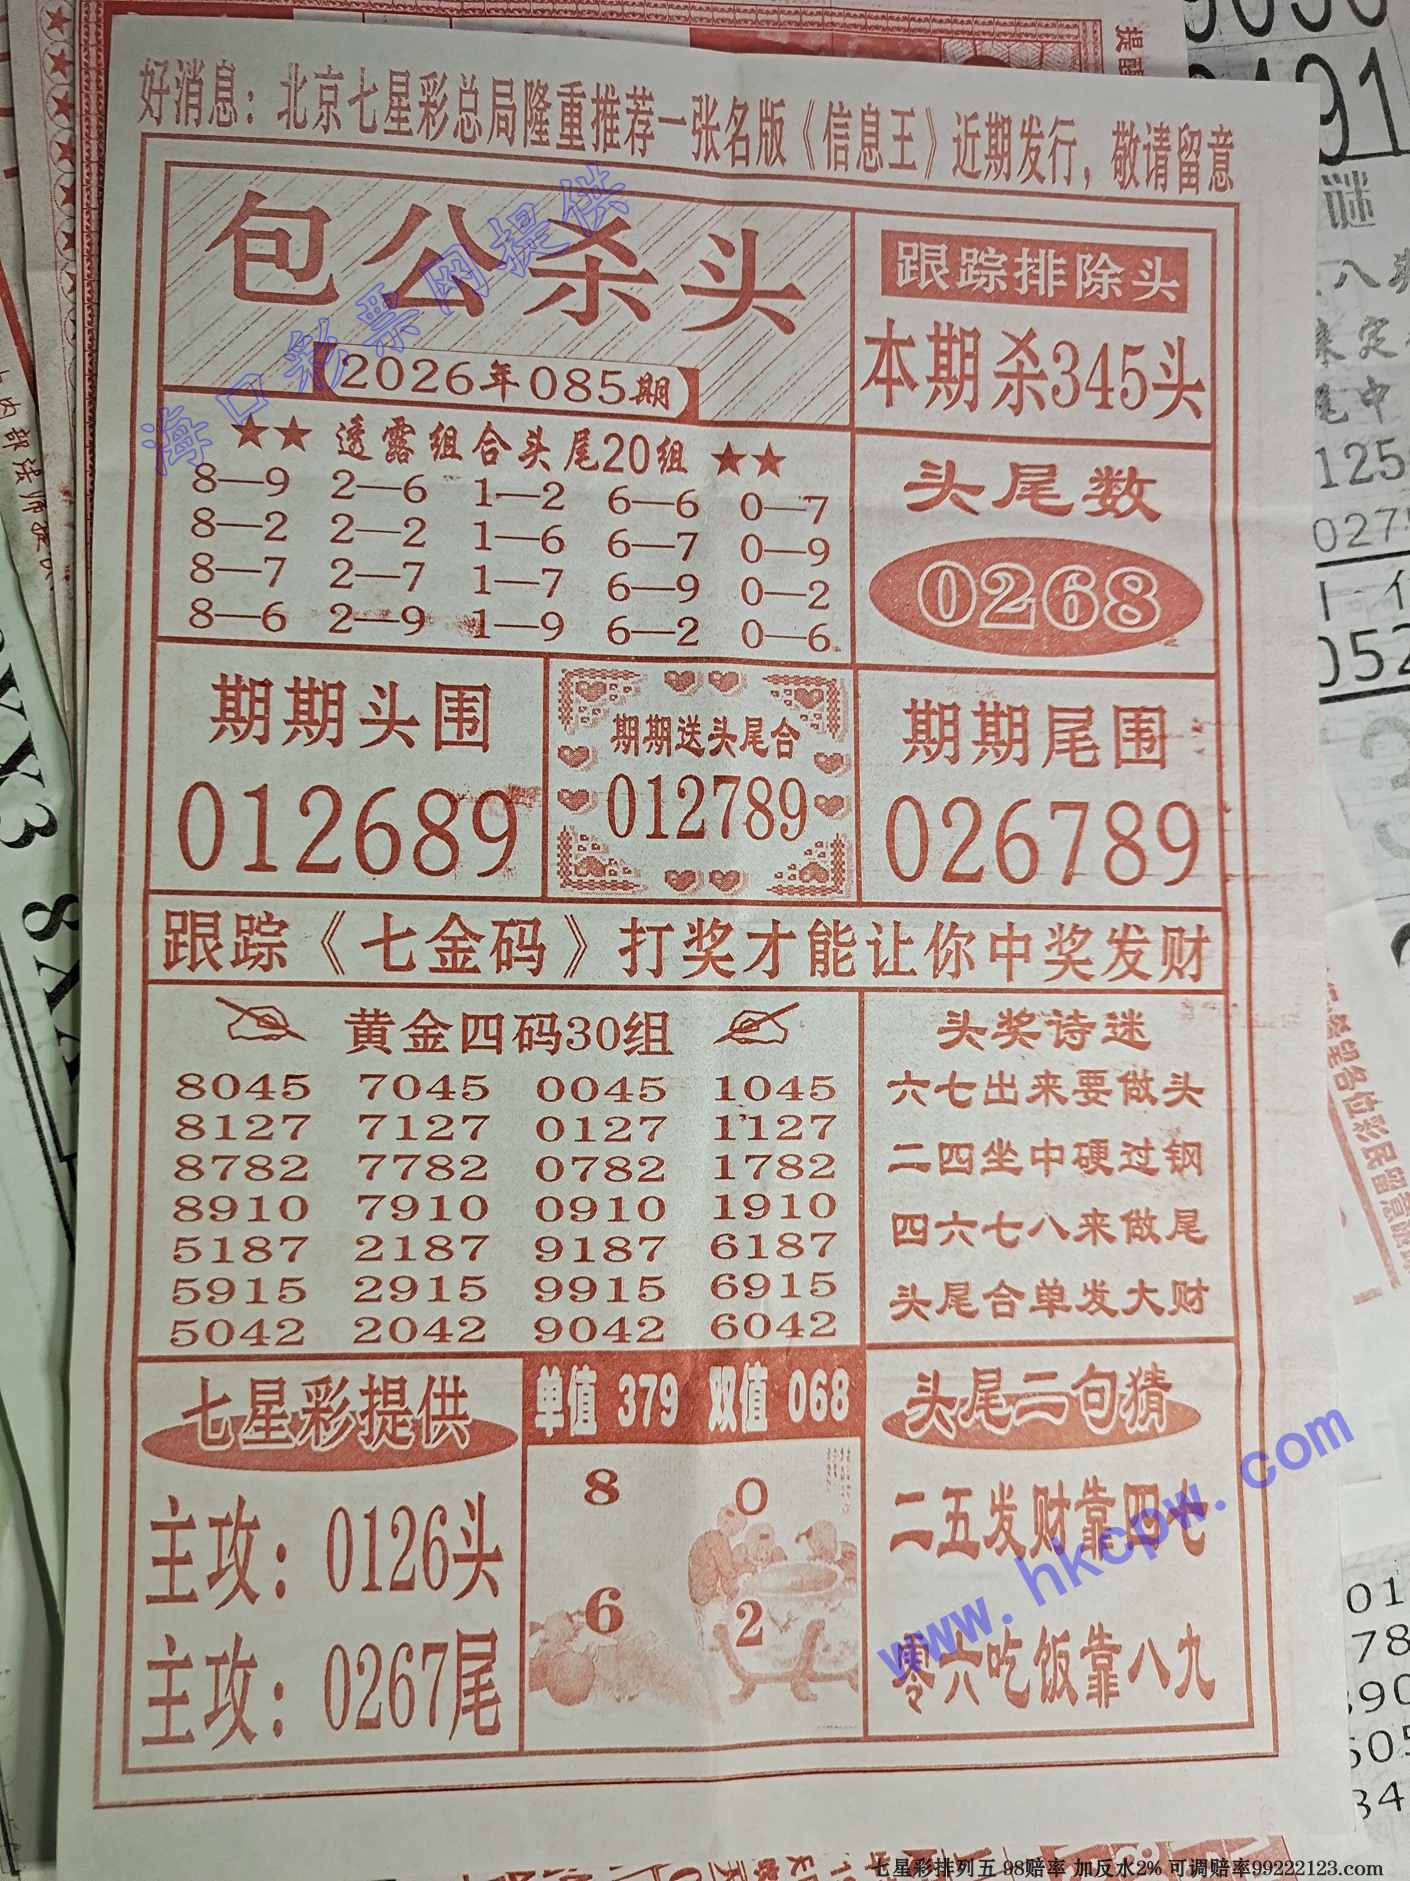 好消息：北京七星彩总局隆重推荐一张名版《信息王》近期发行，敬请留意
包公杀头
2026年085期
跟踪排除头
本期杀345头
★★ 透露组合头尾20组 ★★
8—9 2—6 1—2 6—6 0—7
8—2 2—2 1—6 6—7 0—9
8—7 2—7 1—7 6—9 0—2
8—6 2—9 1—9 6—2 0—6
头尾数
0268
期期头围
012689
期期送头尾合
012789
期期尾围
026789
跟踪《七金码》打奖才能让你中奖发财
黄金四码30组
8045 7045 0045 1045
8127 7127 0127 1127
8782 7782 0782 1782
8910 7910 0910 1910
5187 2187 9187 6187
5915 2915 9915 6915
5042 2042 9042 6042
头奖诗迷
六七出来要做头
二四坐中硬过钢
四六七八来做尾
头尾合单发大财
七星彩提供
主攻：0126头
主攻：0267尾
单值 379 双值 068
8 0
6 2
头尾二句猜
二五发财靠四七
零六吃饭靠八九
海口彩票网提供
www.hkcpw.com
七星彩排列五 98赔率 加反水2% 可调赔率99222123.com